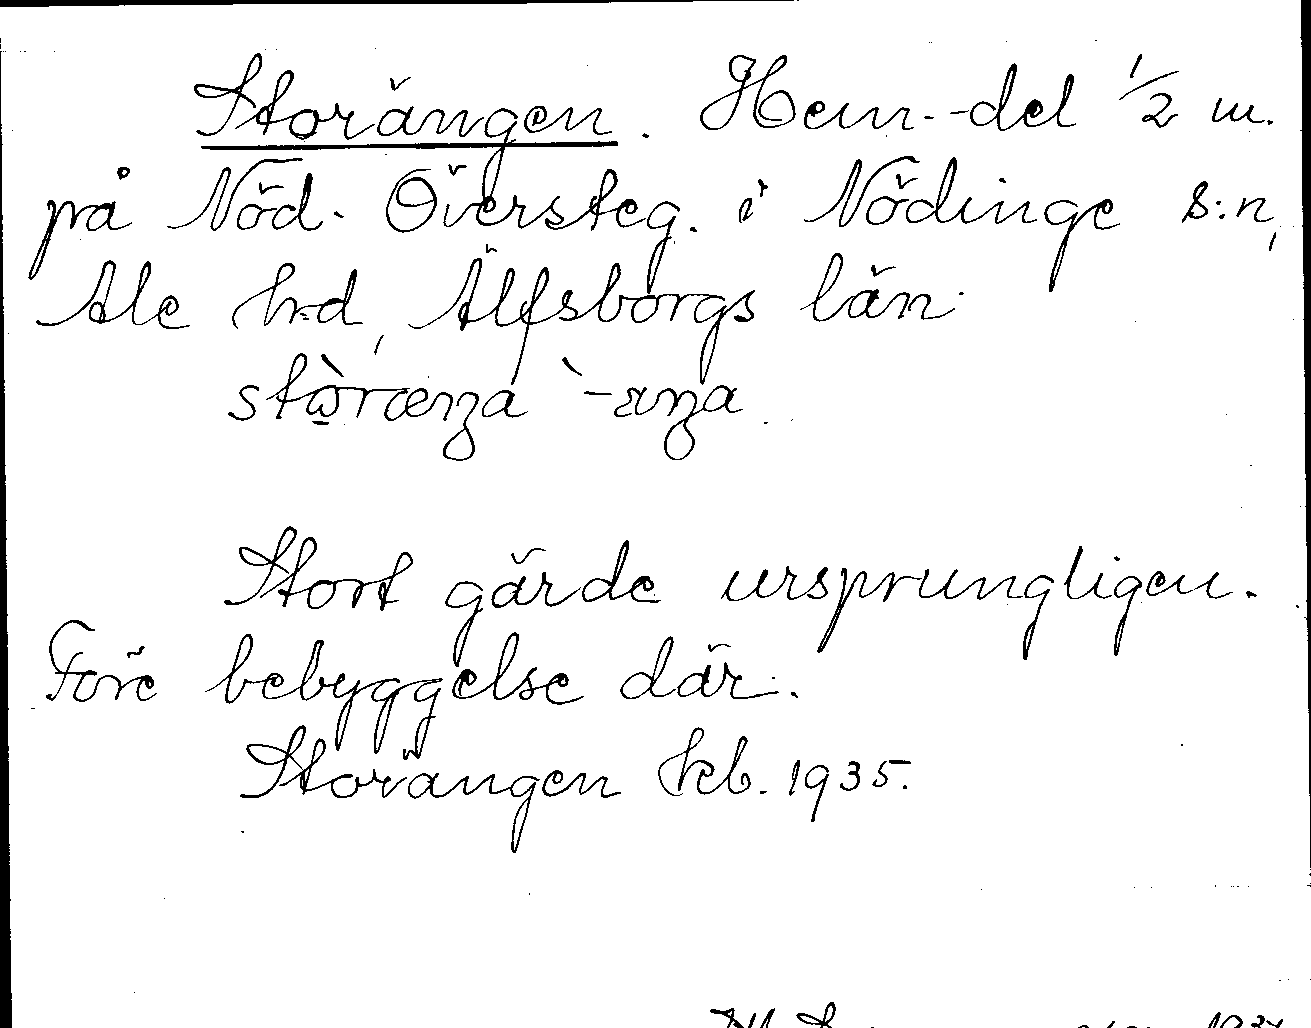 Storängen. Hem.-del 1/2 m.
på Nöd. Översteg. i Nödinge s:n,
Ale hd, Älfsborgs län.
Stort gärde ursprungligen.
Före bebyggelse där.
Storängen Jeb. 1935.